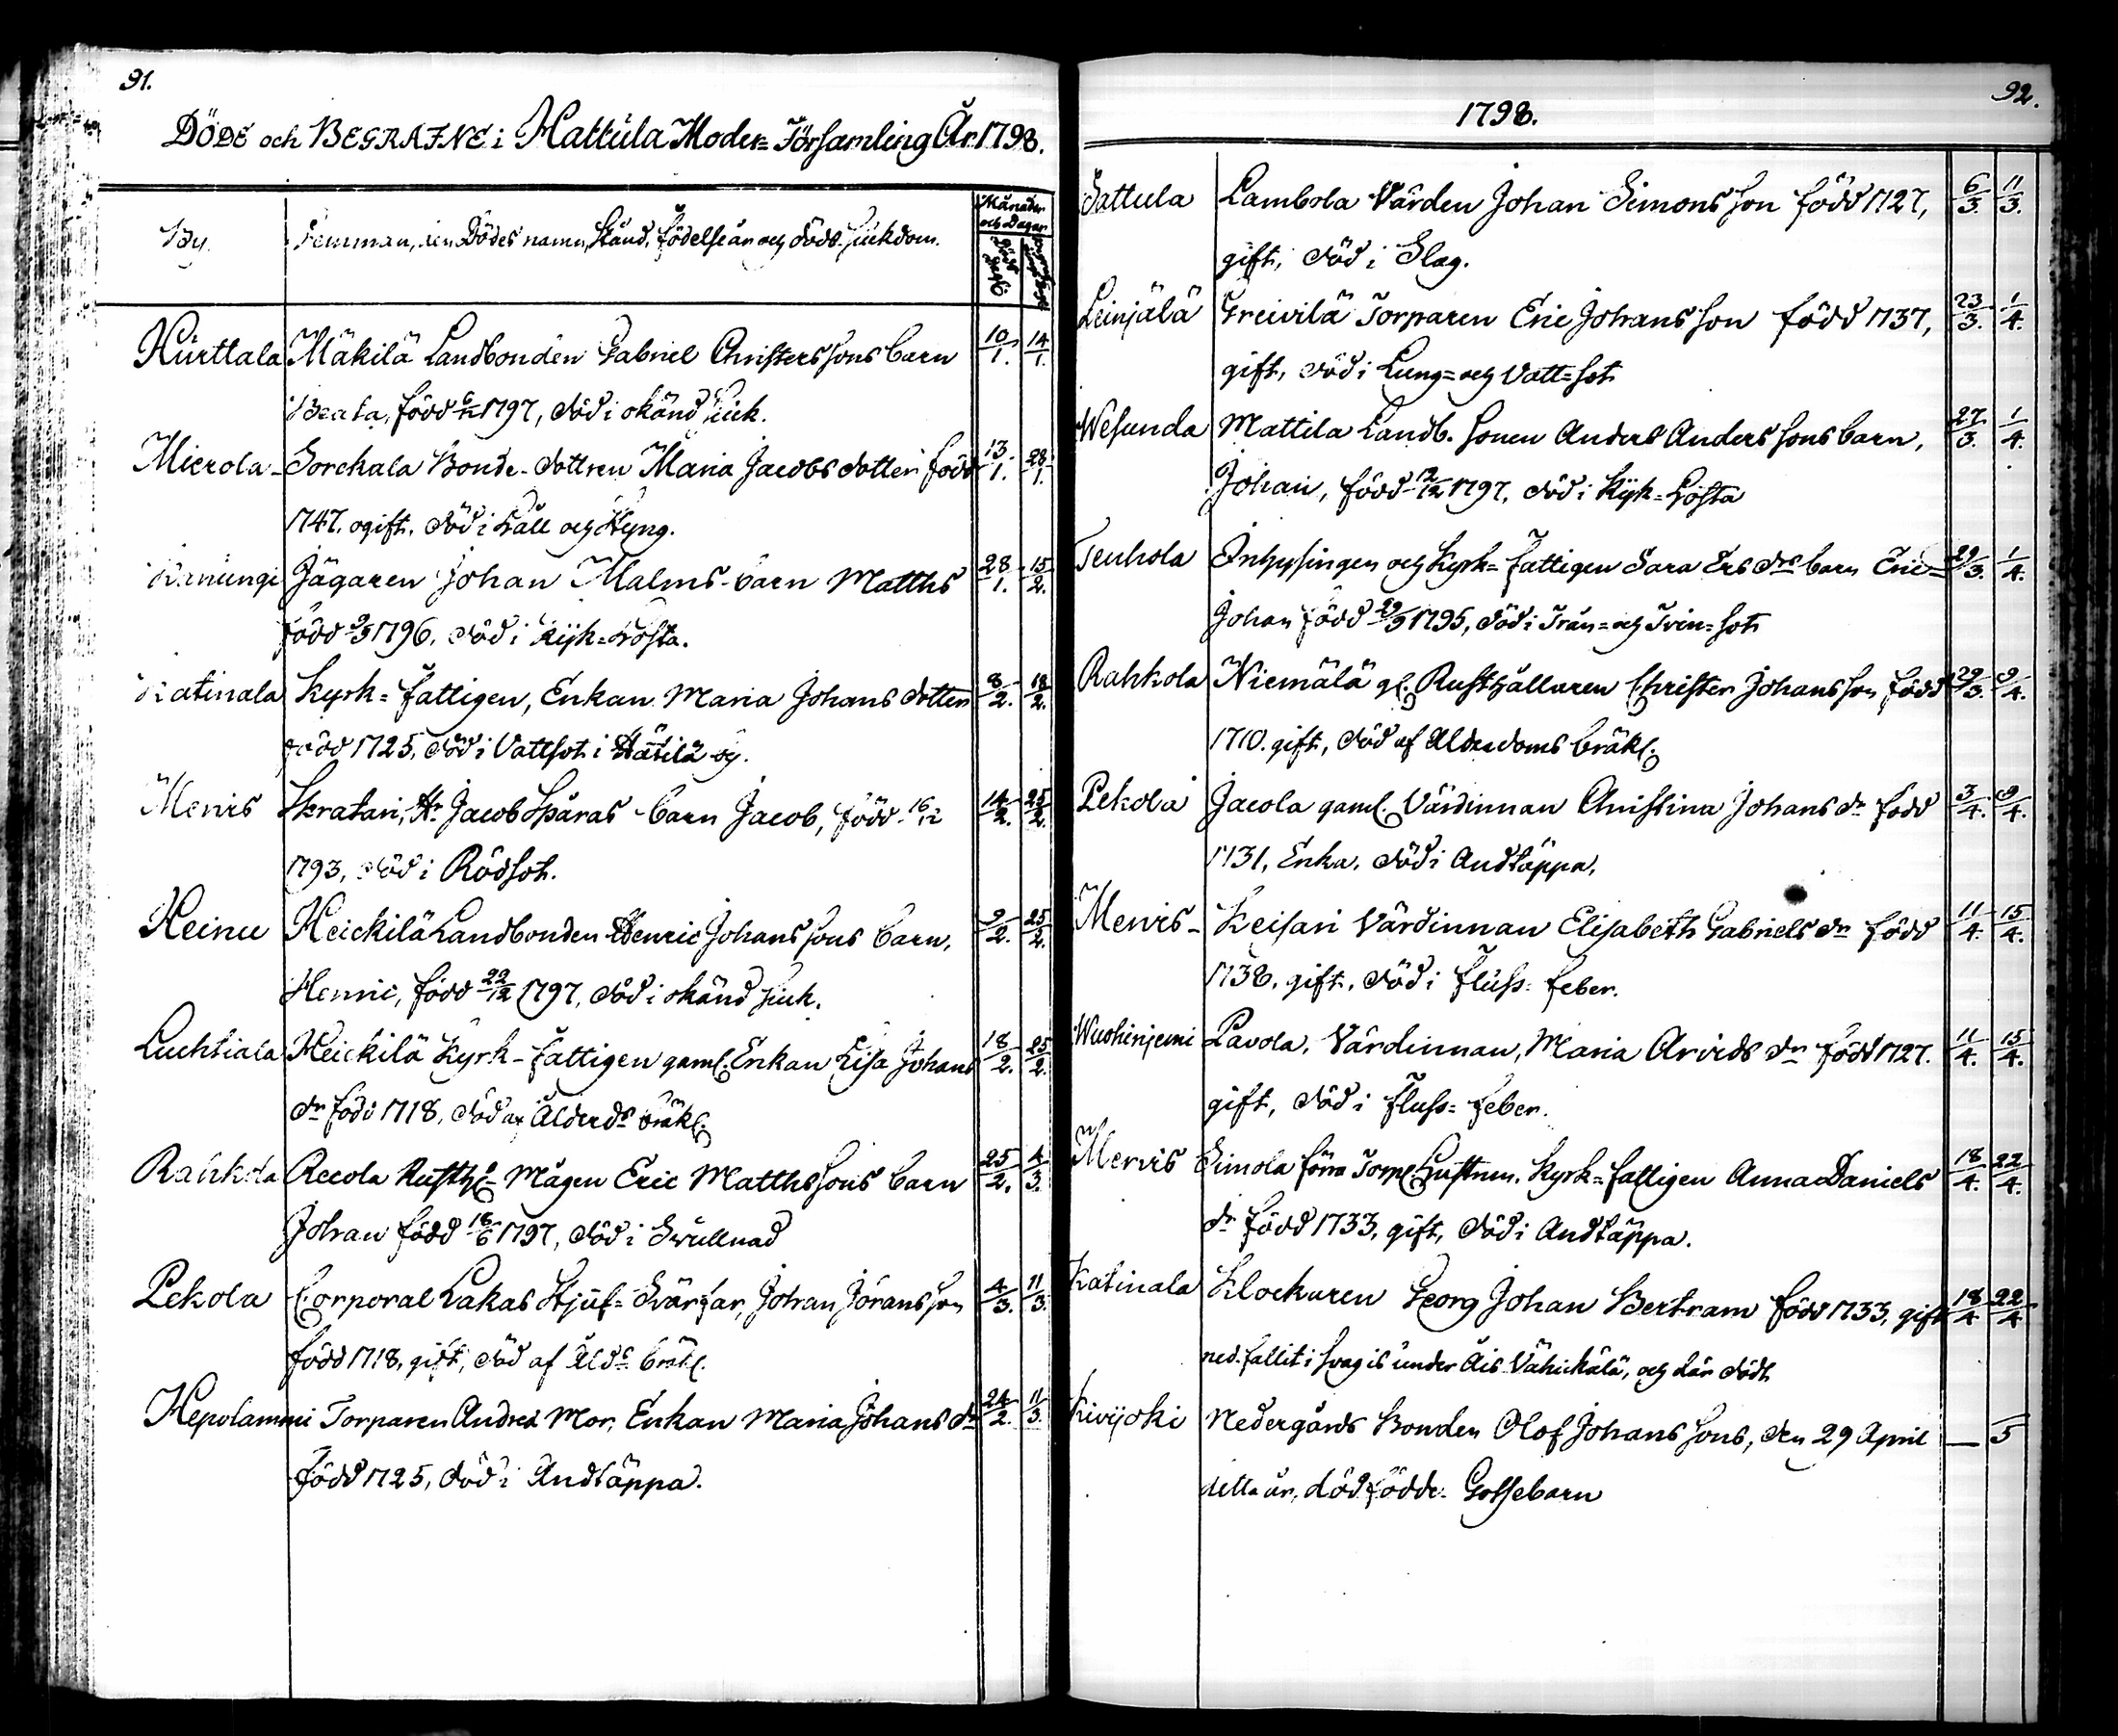 91.
DÖDE och BEGRAFNE i Hattula Moder=Församling År 1798.
By.
Hemman, den Dödes namn, Stånd, Födelseår och döds Siukdom.
Månader och Dagar
Hurttala Mäkilä Landbonden Gabriel Christerssons barn 10/1. 14/1.
Beata, född 1797, död i okänd Siuk.
Mierola- Sorckala Bonde-dottren Maria Jacobs dotter född 13/1. 28/1.
1747. ogift. död i Håll och Styng.
Jägaren Johan Malms barn Matths 28/1. 15/2.
född 1796, död i Kijk=Hosta.
Katinala Kyrk=fattigen, Enkan Maria Johans dotter 8/2. 18/2.
född 1725, död i Vattsot i Hätilä by.
Mervis Skratari, Hr Jacob Spåras barn Jacob, född 16/12 14/2. 25/2.
1793, död i Rödsot.
Heinu Heickilä Landbonden Henric Johanssons barn, 9/2. 25/2.
Henric, född 22/12 1797, död i okänd siuk.
Luchtiala Heickilä Kyrk-fattigen gaml. Enkan Lisa Johans 18/2. 25/2.
dr född 1718, död af Ålderds bräkl.
Rahkola Recola Rusth. Mågen Eric Matthssons barn 25/2. 4/3.
Johan född 18/6 1797, död i Svullnad
Pekola Corporal Lakas Stjuf=Svärfar, Johan Jöransson 4/3. 11/3
född 1718, gift, död af Åldrs bräkl.
Hepolammi Torparen Andreá Mor, Enkan Maria Johans dr 24/2. 11/3.
född 1725, död i Andtäppa.
92.
1798.
Sattula Lambola Värden Johan Simonsson född 1727, 6/3. 11/3.
gift, död i Slag.
Leinjälä Greivilä Torparen Eric Johansson född 1737, 23/3. 1/4.
gift, död i Lung=och Vatt=sot
Wesunda Mattila Landb. sonen Anders Anderssons barn, 27/3. 1/4.
Johan, född 12/12 1797, död i Kijk=Hosta
Tenhola Inhysingen och Kyrk=fattigen Sara Ers drs barn Eric 29/3. 1/4.
Johan född 29/9 1795, död i Trån=och Tvin=sot
Rahkola Niemälä gl. Rusthållaren Christer Johansson född 29/3. 9/4.
1710. gift, död af Ålderdoms bräkl.
Pekola Jacola gaml. Värdinnan Christina Johans dr född 3/4. 9/4.
1731, Enka, död i Andtäppa.
Mervis- Keisari Värdinnan Elisabeth Gabriels dr född 11/4. 15/4.
1738, gift, död i fluss=feber.
Wuohinjemi Pavola, Värdinnan, Maria Arvids dr född 1727. 11/4. 15/4.
gift, död i fluss=feber.
Mervis Simola förra Torp. Hustrun, Kyrk=fattigen Anna Daniels 18/4. 22/4.
dr född 1733, gift, död i Andtäppa.
Katinala Klockaren Georg Johan Bertram född 1733, gift 18/4 22/4
ned fallit i svag is under Ais Vähickälä, och där dödt
Kivijoki Nedergårds Bonden Olof Johanssons, den 29 April — 5
detta år, död födde Gossebarn